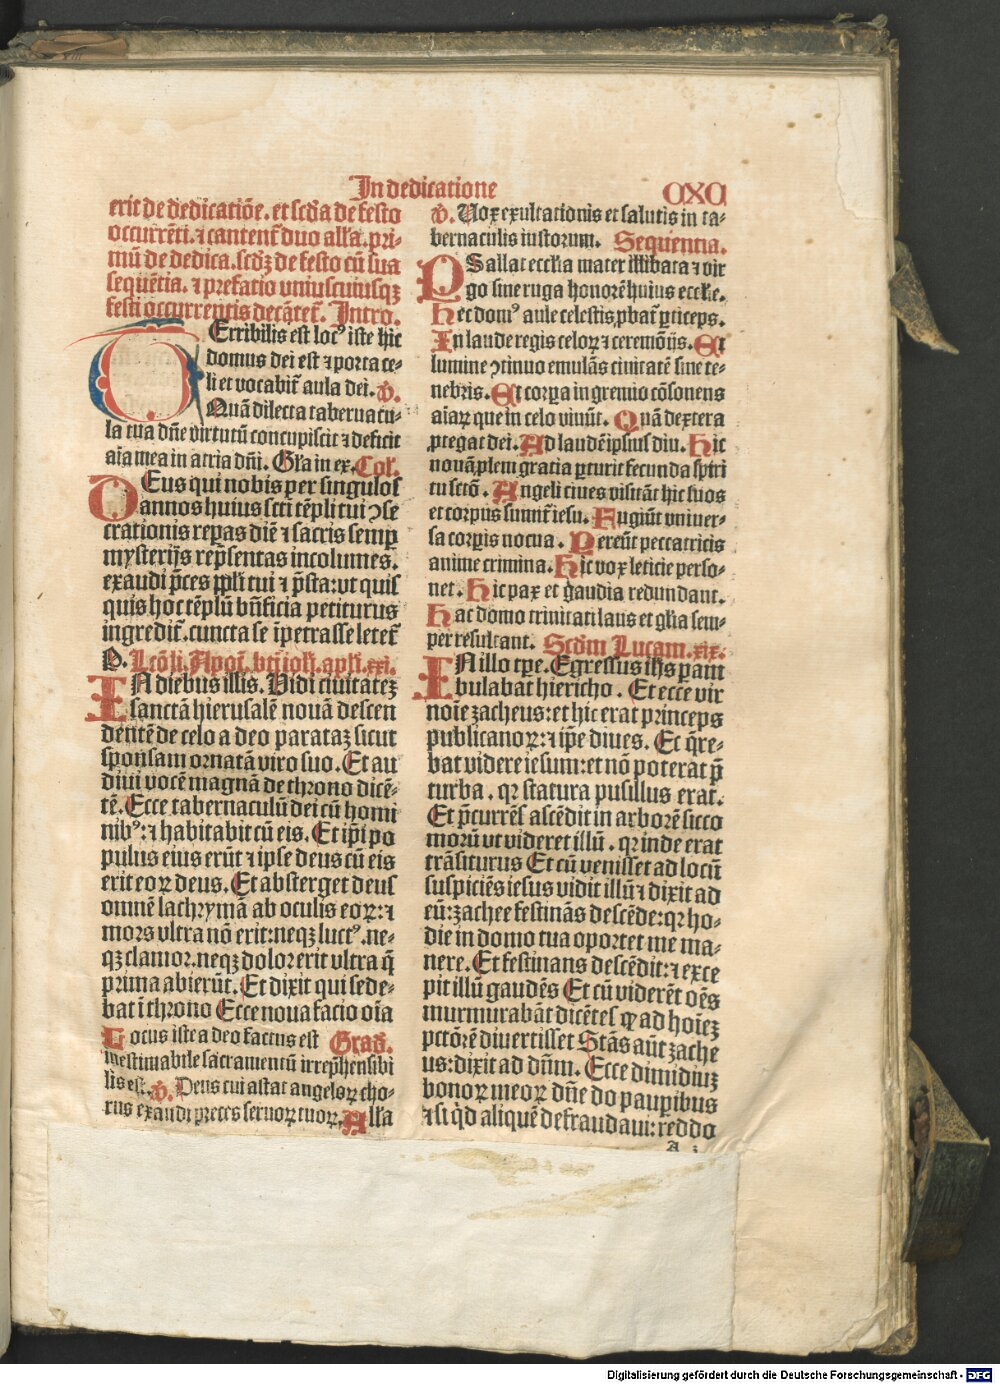 In dedicatione CXC
erit de dedicatiōe. et scd̄a de festo
occurrēti. ⁊ cantent̄ duo all'a. pri-
mū de dedica. scd̄ꝫ de festo cū sua
sequētia. ⁊ prefatio vniuscuiusqꝫ
festi occurrentis decātet̄. Intro.
TErribilis est locꝰ iste hic
domus dei est ⁊ porta ce-
li et vocabit̄ aula dei. v̄.
Quā dilecta tabernacu-
la tua dn̄e virtutū concupiscit ⁊ deficit
aīa mea in atria dn̄i. Gl'a in ex. Col'.
DEus qui nobis per singulos
annos huius scti tēpli tui ↄse
crationis repas diē ⁊ sacris semp
mysterijs rep̄sentas incolumes.
exaudi p̄ces ppl'i tui ⁊ p̄sta: vt quis
quis hoc tēplū bn̄ficia petiturus
ingredit̄. cuncta se īpetrasse letet̄
P. Lcō li. Apoc̄. bt̄i ioh̄. apl'i. xxi.
IN diebus illis. Vidi ciuitatēꝫ
sanctā hierusalē nouā descen
dentē de celo a deo parataꝫ sicut
sponsam ornatā viro suo. Et au
diui vocē magnā de throno dicē-
tē. Ecce tabernaculū dei cū homi
nibꝰ: ⁊ habitabit cū eis. Et ip̄i po
pulus eius erūt ⁊ ipse deus cū eis
erit eoꝝ deus. Et absterget deus
omnē lachrymā ab oculis eoꝝ: ⁊
mors vltra nō erit: neqꝫ luctꝰ. ne-
qꝫ clamor. neqꝫ dolor erit vltra q̄
prima abierūt. Et dixit qui sede-
bat ī throno Ecce noua facio oīa
Locus iste a deo factus est Grad̄.
inestimabile sacramentū irrep̄hensibi
lis est. v̄. Deus cui astat angeloꝝ cho-
rus exaudi preces seruoꝝ tuoꝝ. All'a
v̄. Vox exultationis et salutis in ta-
bernaculis iustorum. Sequentia.
PSallat eccl'ia mater illibata ⁊ vir
go sine ruga honorē huius eccl'e.
Hec domꝰ aule celestis ꝓbat̄ ꝑticeps.
In laude regis celoꝝ ⁊ ceremōijs. Et
lumine ↄtinuo emulās ciuitatē sine te-
nebris. Et corꝑa in gremio cōfouens
aīaꝝ que in celo viuūt. Quā dextera
ꝓtegat dei. Ad laudē ipsius diu. Hic
nouā ꝓlem gratia ꝑturit fecunda spiri
tu sctō. Angeli ciues visitāt hic suos
et corpus sumit̄ iesu. Fugiūt vniuer-
sa corꝑis nocua. Pereūt peccatricis
anime crimina. Hic vox leticie perso-
net. Hic pax et gaudia redundant.
Hac domo trinitati laus et gl'ia sem-
per resultant. Scd̄m Lucam. xix.
IN illo tꝑe. Egressus ih̄s ꝑam
bulabat hiericho. Et ecce vir
noīe zacheus: et hic erat princeps
publicanoꝝ: ⁊ ip̄e diues. Et q̄re-
bat videre iesum: et nō poterat p̄
turba. qꝛ statura pusillus erat.
Et p̄currēs ascēdit in arborē sicco
morū vt videret illū. qꝛ inde erat
trāsiturus Et cū venisset ad locū
suspiciēs iesus vidit illū ⁊ dixit ad
eū: zachee festinās descēde: qꝛ ho-
die in domo tua oportet me ma-
nere. Et festinans descēdit: ⁊ exce
pit illū gaudēs Et cū viderēt oēs
murmurabāt dicētes ꝙ ad hoīeꝫ
pctōrē diuertisset Stās aūt zache
us: dixit ad dn̄m. Ecce dimidiuꝫ
bonoꝝ meoꝝ dn̄e do pauꝑibus
⁊ si q̇d aliquē defraudaui: reddo
A 3
Digitalisierung gefördert durch die Deutsche Forschungsgemeinschaft - DFG